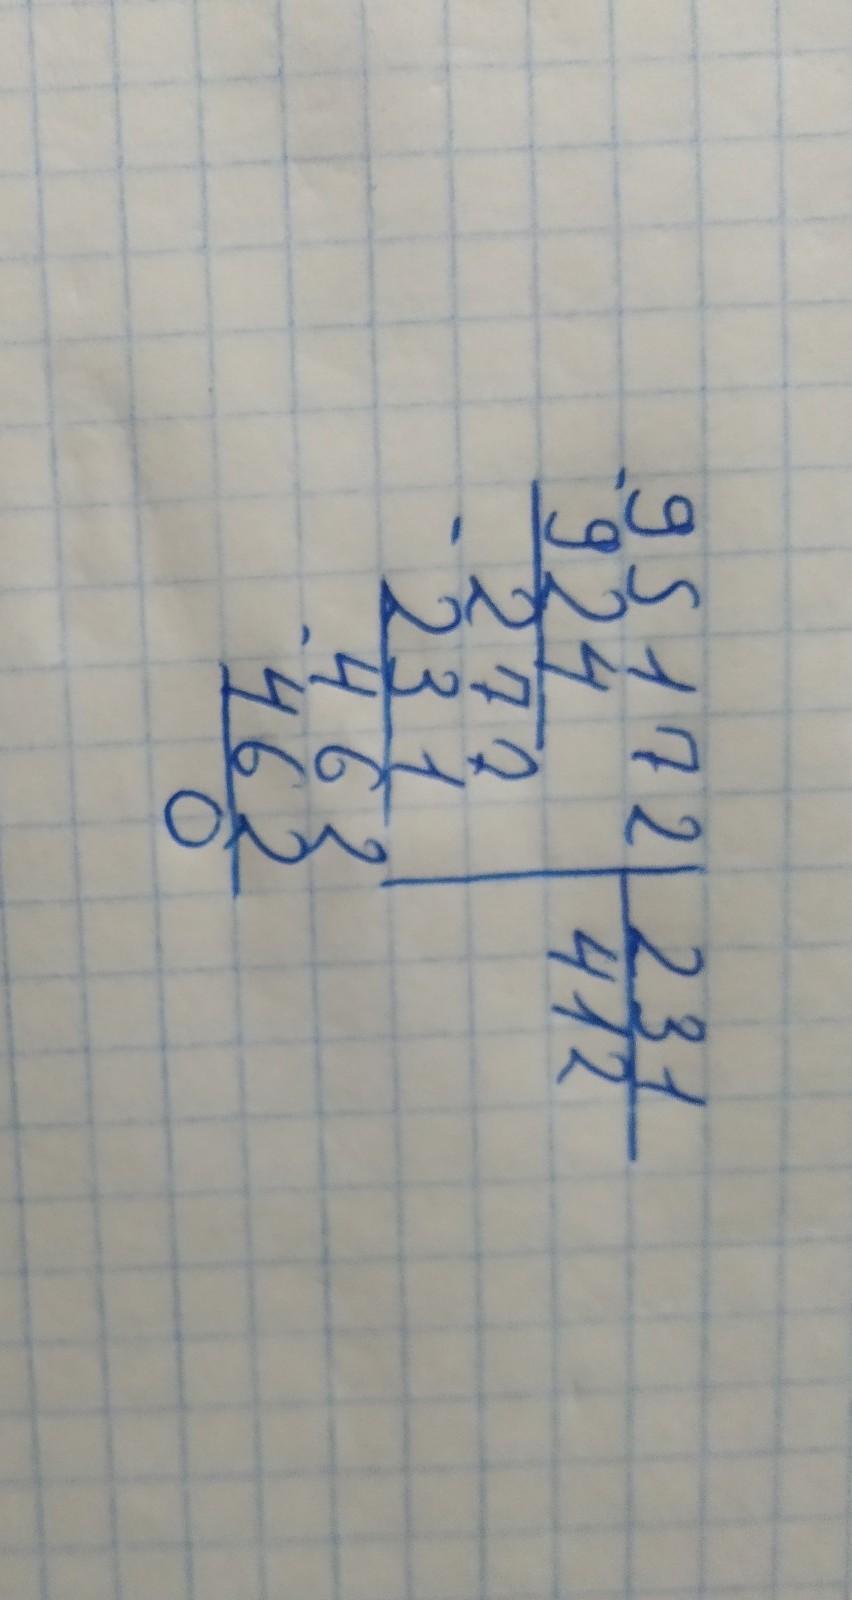 95172 231
924 412
277
231
462
462
0